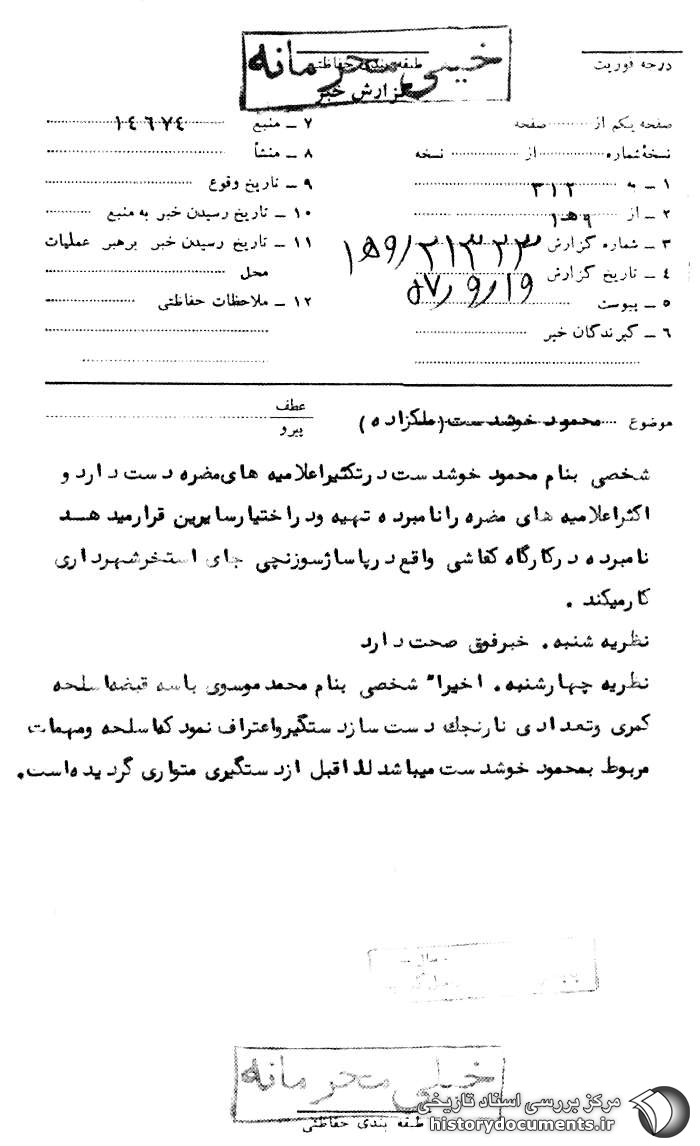 خیلی محرمانه
درجه فوریت
طبقه بندی حفاظتی
گزارش خبر
صفحه یکم از ........ صفحه
نسخهٔ شماره ........ از ........ نسخه
۱ ــ به ۳۱۲
۲ ــ از ۱ﻫ۹
۳ ــ شماره گزارش ۲۱۳۲۳/ﻫ۱۹
۴ ــ تاریخ گزارش ۵۷/۹/۱۹
۵ ــ پیوست
۶ ــ گیرندگان خبر
۷ ــ منبع ۱٤٦٧٤
۸ ــ منشأ
۹ ــ تاریخ وقوع
۱۰ ــ تاریخ رسیدن خبر به منبع
۱۱ ــ تاریخ رسیدن خبر برهبر عملیات
محل
۱۲ ــ ملاحظات حفاظتی
موضوع محمود خوشدست (ملکزاده)
عطف
پیرو
شخصی بنام محمود خوشدست در تکثیر اعلامیه های مضره دست دارد و
اکثر اعلامیه های مضره را نامبرده تهیه و در اختیار سایرین قرار میدهد
نامبرده در کارگاه کفاشی واقع در پاساژ سوزنچی جای استخر شهرداری
کار میکند .
نظریه شنبه . خبر فوق صحت دارد
نظریه چهارشنبه . اخیراً شخصی بنام محمد موسوی با سه قبضه اسلحه
کمری و تعدادی نارنجک دست ساز دستگیر و اعتراف نمود که اسلحه و مهمات
مربوط به محمود خوشدست میباشد لذا قبل از دستگیری متواری گردیده است.
خیلی محرمانه
طبقه بندی حفاظتی
مرکز بررسی اسناد تاریخی
historydocuments.ir